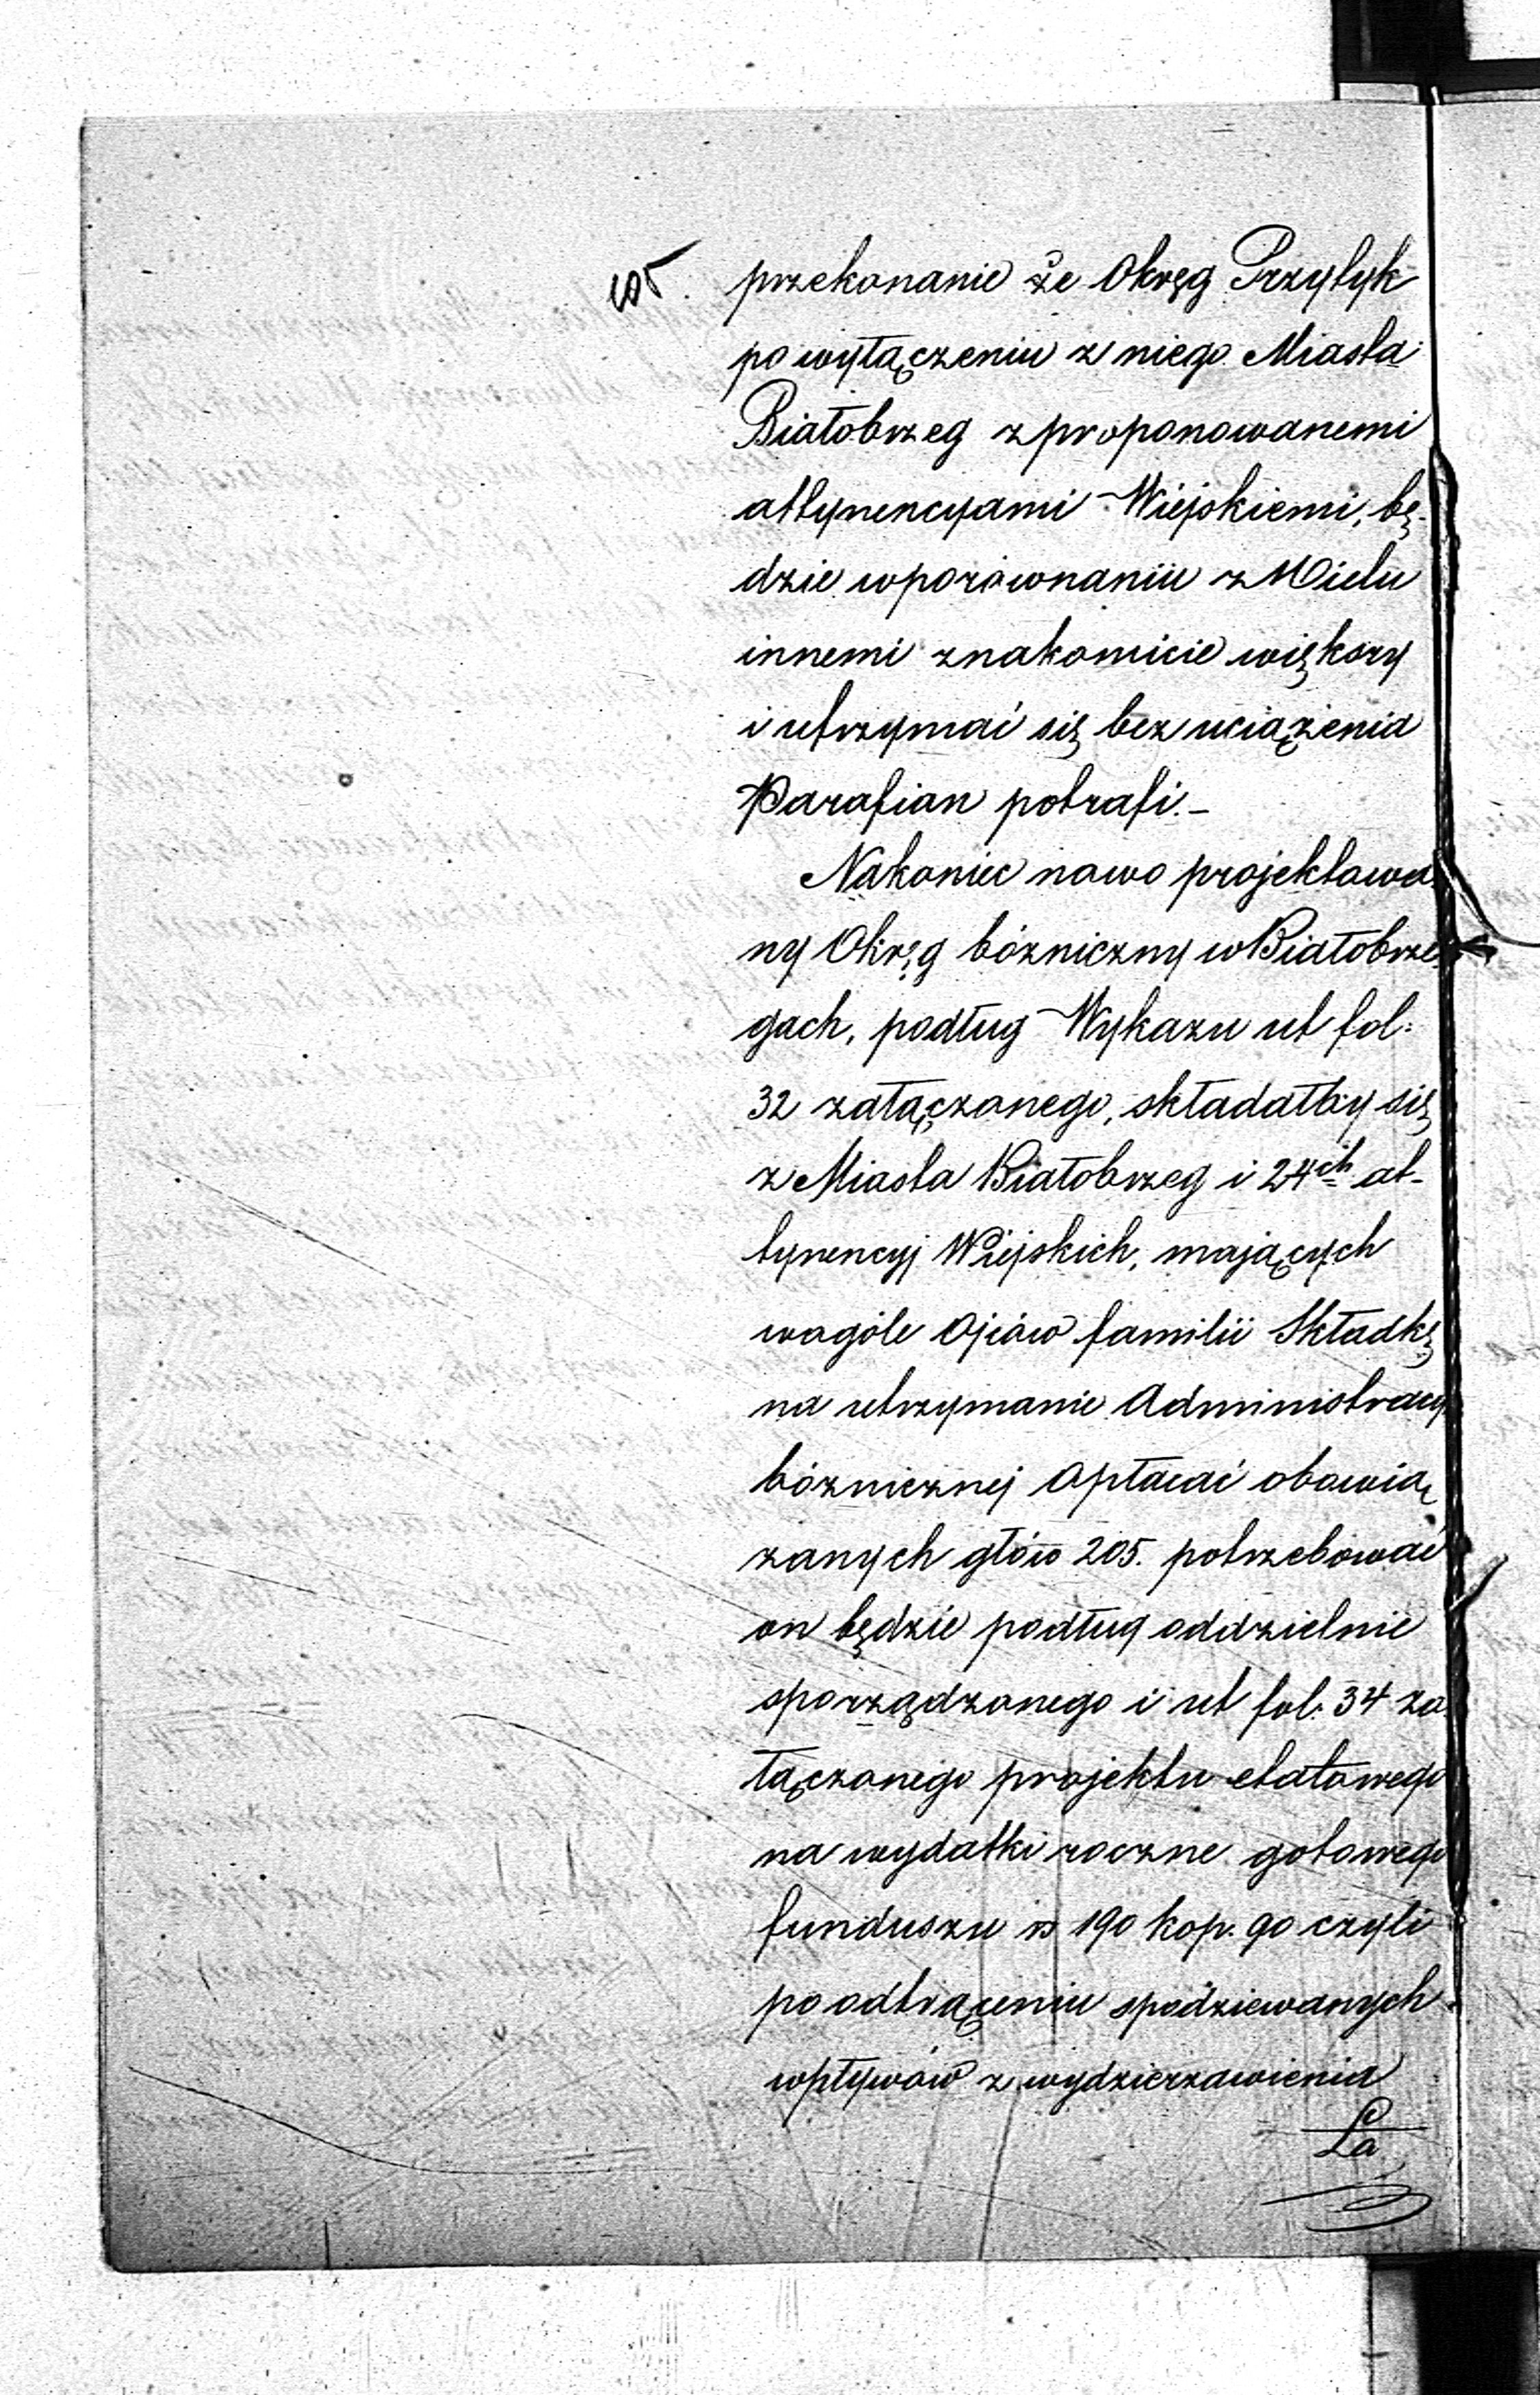 przekonanie że Okręg Przytyk
po wyłączeniu z niego Miasta
Białobrzeg z proponowanemi
attynencyami Wiejskiemi, bę-
dzie w porównaniu z Wielu
innemi znakomicie większy
i utrzymać się bez uciążenia
Parafian potrafi.-
Nakoniec nowo projektowa-
ny Okręg bóżniczny w Białobrze-
gach, podług Wykazu ut fol:
32 załączonego, składałby się
z Miasta Białobrzeg i 24ch at-
tynencyj Wiejskich, mających
wogóle Ojców familii Składkę
na utrzymanie Administracyi
bóżnicznej Opłacać obowią
zanych głów 205. potrzebować
on będzie podług oddzielnie
sporządzonego i ut fol: 34 za-
łączonego projektu etatowego
na wydatki roczne gotowego
funduszu rs 190 kop. 90 czyli
po odtrąceniu spodziewanych
wpływów z wydzierżawienia